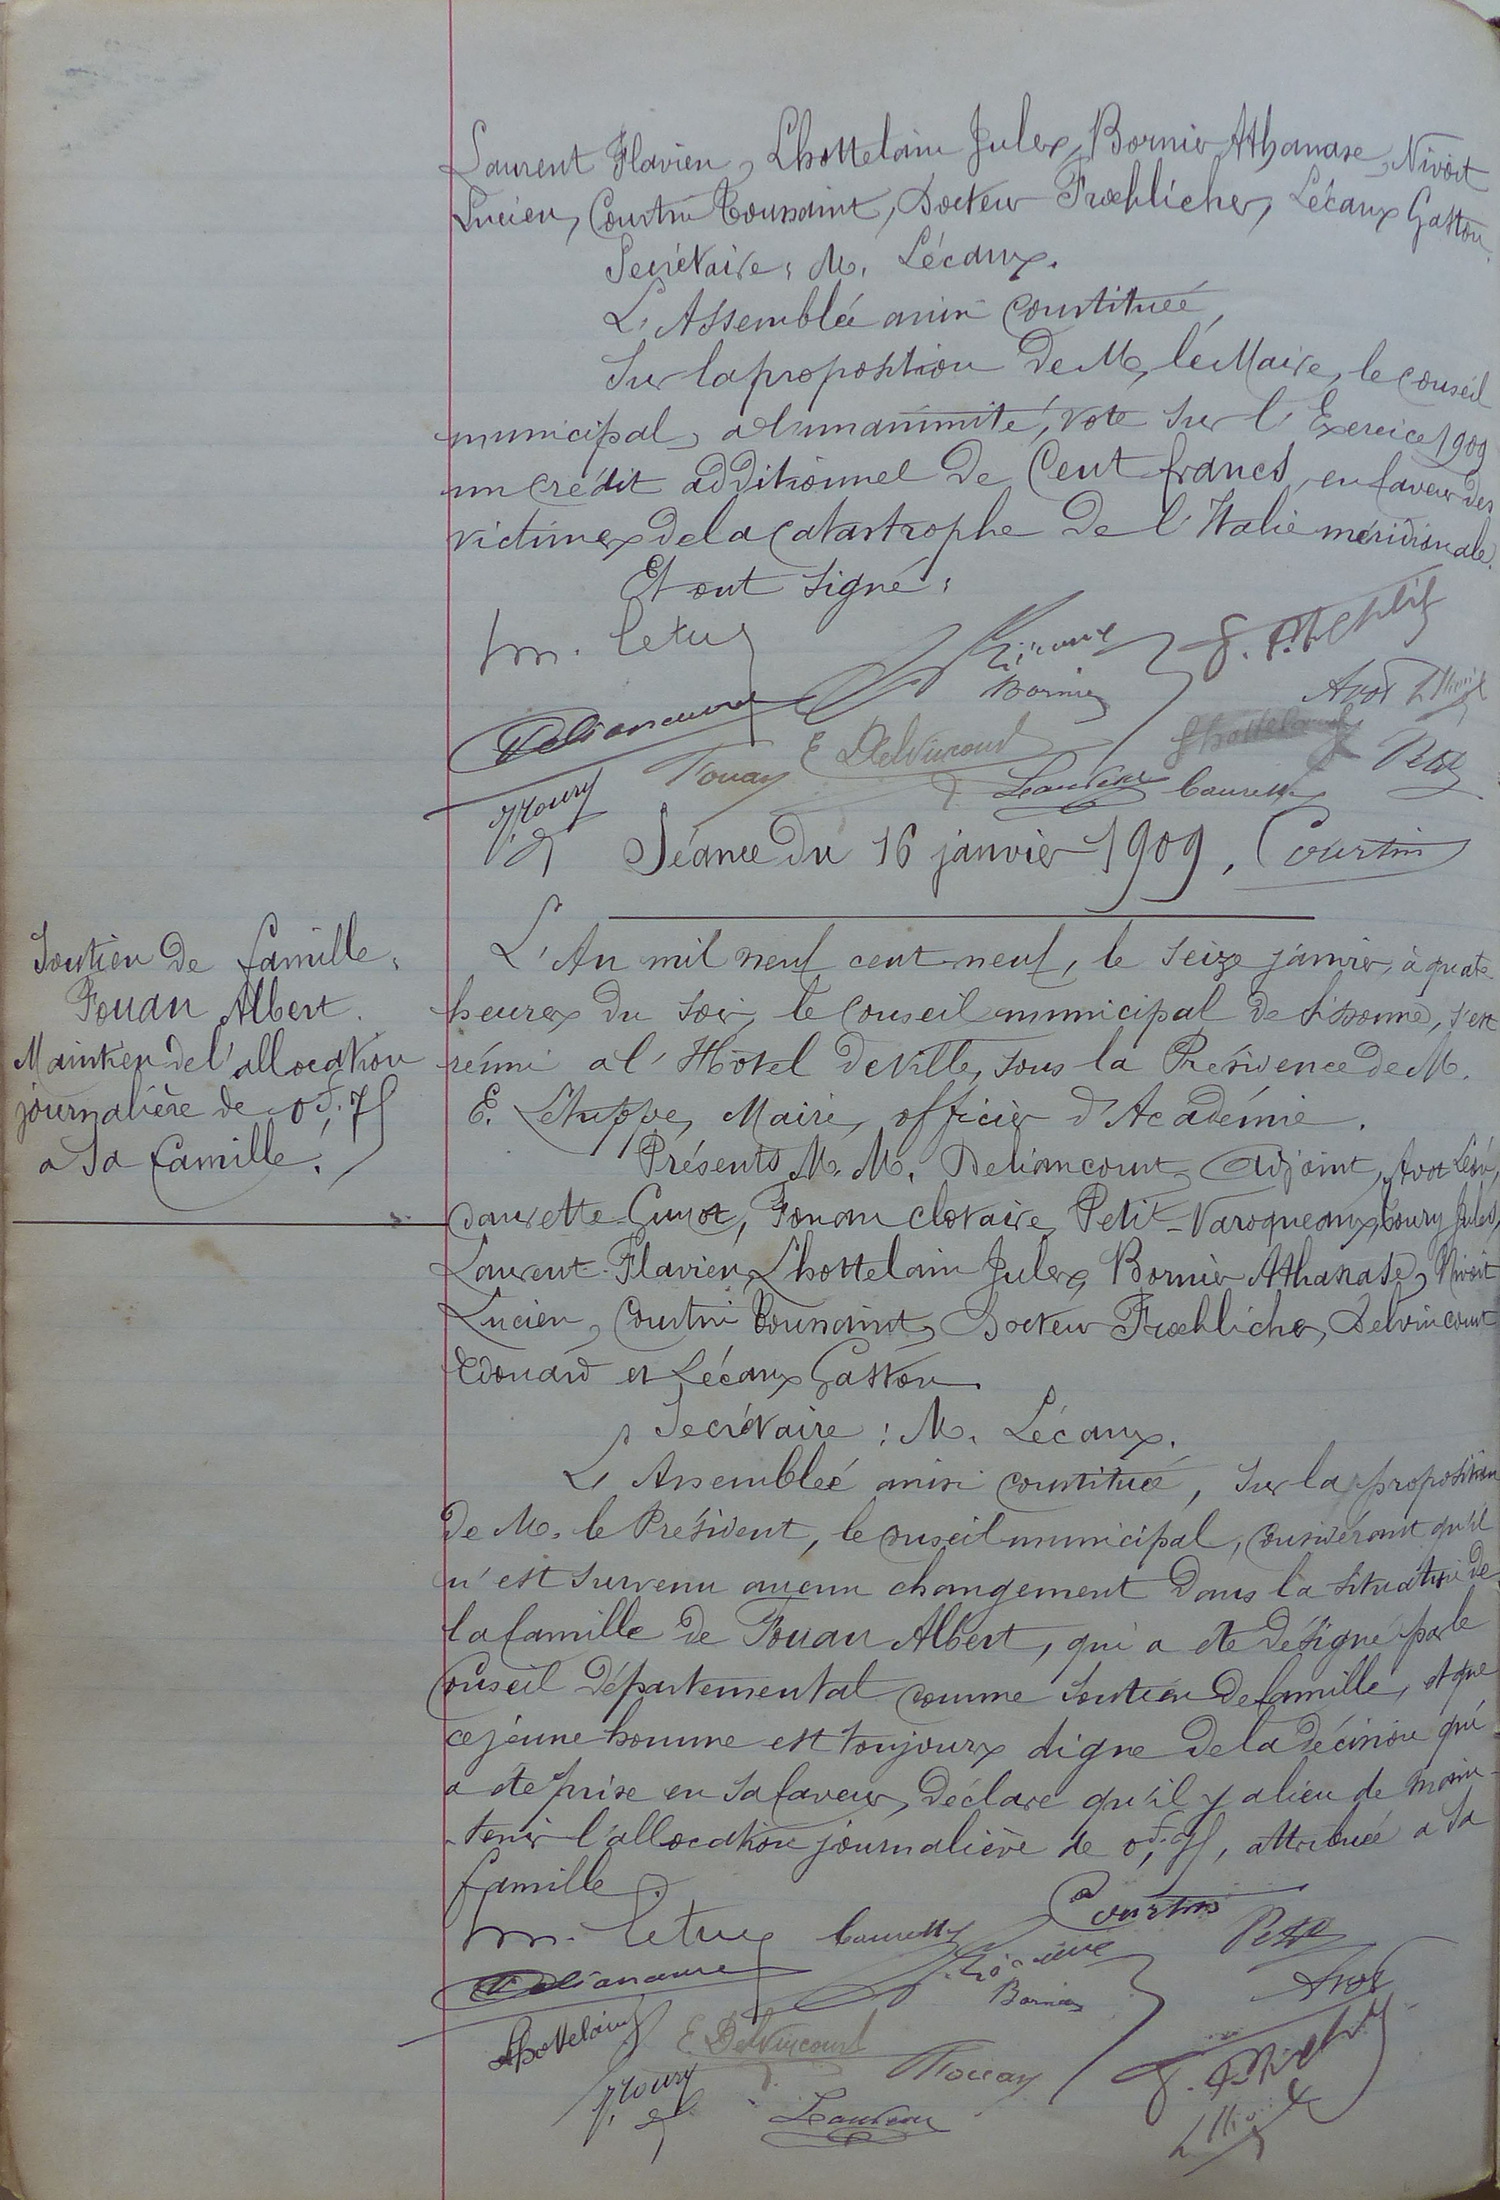 Laurent Flavien, Lhottelain Jules, Bornier Athanase, Nivoit
Lucien, Courtin Toussaint, Docteur Froehlicher, Lécaux Gaston.
Secrétaire : M. Lécaux.
L'Assemblée ainsi constituée,
Sur la proposition de M. le Maire, le Conseil
municipal, a l'unanimité, vote sur l'Exercice 1909
un crédit additionnel de Cent francs en faveur des
victimes de la Catastrophe de l'Italie méridionale.
Et ont signé :
Bornier
Avot
Deliancourt
E Delvincourt
Lhottelain
Petit
Fouan
J. Toury
Laurent
Caurette
Séance du 16 janvier 1909. Courtin
Soutien de famille.
Fouan Albert.
Maintien de l'allocation
journalière de 0f,75
a sa famille.
L'An mil neuf cent neuf, le seize janvier, à quatre
heures du soir, le Conseil municipal de Sissonne, s'est
réuni a l'Hôtel de Ville, sous la Présidence de M.
E. Letuppe, Maire, officier d'Académie.
Présents M. M. Deliancourt, Adjoint, Avot Léon,
Caurette-Guyot, Fouan Clotaire, Petit-Varoqueaux, Toury Jules,
Laurent Flavien, Lhottelain Jules, Bornier Athanase, Nivoit
Lucien, Courtin Toussaint, Docteur Froehlicher, Delvincourt
Edouard et Lécaux Gaston.
Secrétaire : M. Lécaux.
L'Assemblée ainsi constituée, sur la proposition
de M. le Président, le Conseil municipal, considérant qu'il
n'est survenu aucun changement dans la situation de
la famille de Fouan Albert, qui a été désigné par le
Conseil Départemental comme soutien de famille, et que
ce jeune homme est toujours digne de la décision qui
a été prise en sa faveur, déclare qu'il y a lieu de main-
-tenir l'allocation journalière de 0f,75, attribuée a sa
famille.
Courtin
Caurette
Petit
Deliancourt
Bornier
Avot
Lhottelain
E. Delvincourt
Fouan
J. Toury
Laurent